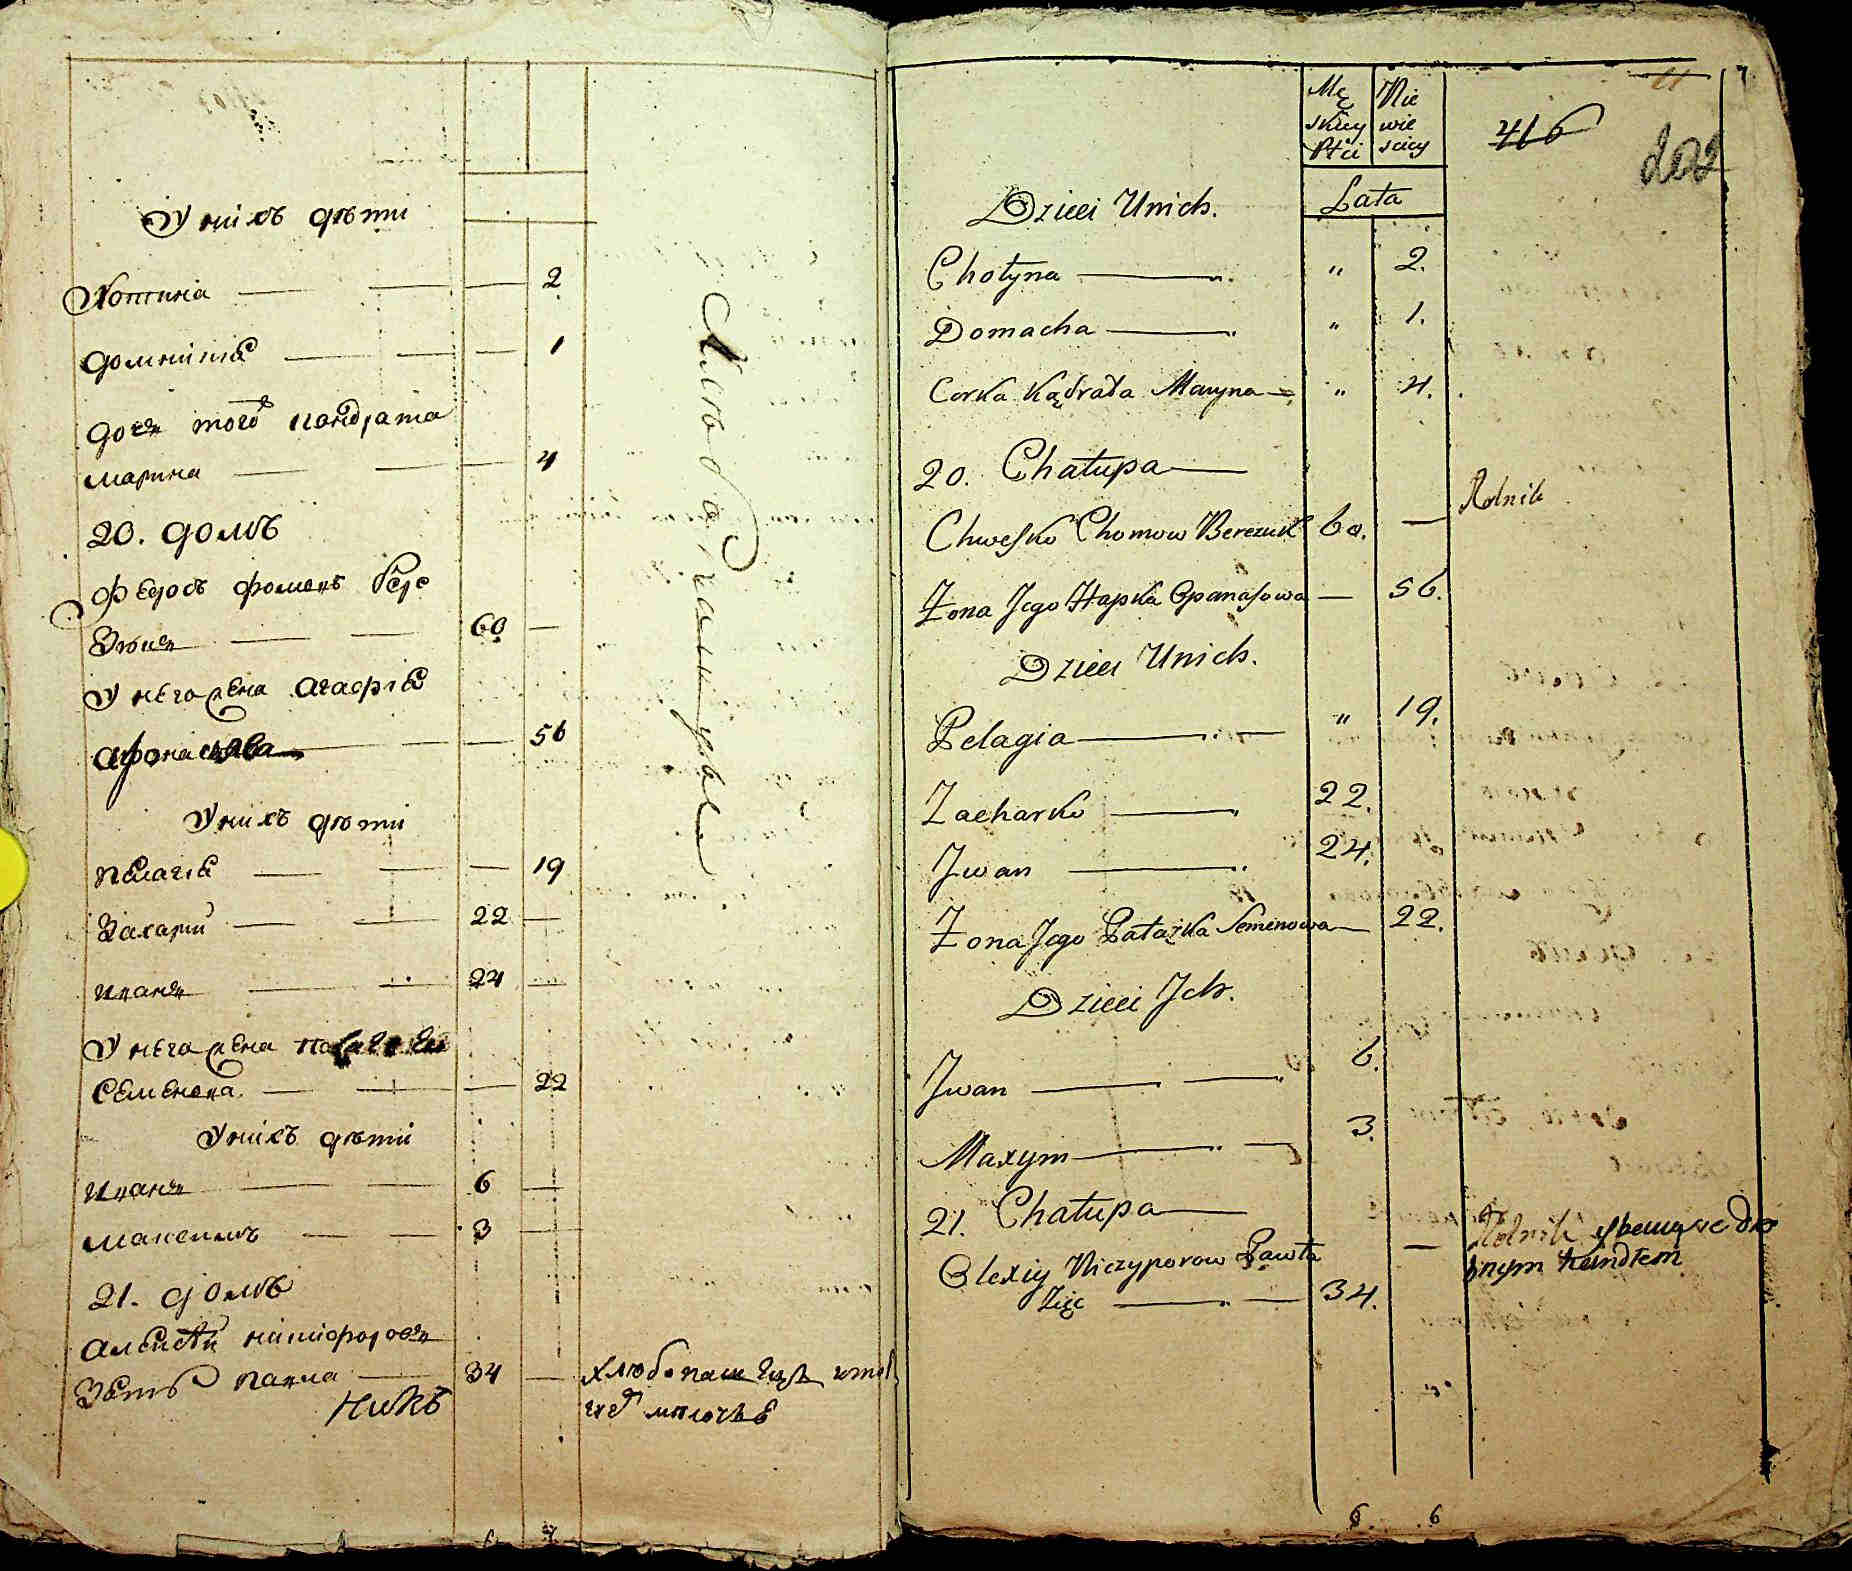 У нихъ дѣти
Хотина — — — 2
Домникія — — — 1
Дочь того Кондрата
Марина — — — 4
20. Домъ
Федоръ Фоминъ Бере
зюкъ — — 60 —
У него жена Агафія
Афонасьева — — — 56
У нихъ дѣти
Пелагія — — — 19
Захарій — — 22 —
Иванъ — — 24 —
У него жена
Семенова — — — 22
У нихъ дѣти
Иванъ — — 6 —
Максимъ — — 3 —
21. Домъ
Алексѣй Никифоровъ
Зеть Павла — 34 — хлебопашецъ
никъ
6 7
Mę Nie
skiey wie
Płci sciey
416
202
Lata
Dzieci Unich.
Chotyna — " 2.
Domacha — " 1.
Corka Kądrata Maryna — " 4.
20. Chałupa —
Chwesko Chomow Berezuk 60. — Rolnik
Żona Jego Hapka Opanasowa — 56.
Dzieci Unich.
Pelagia — " 19.
Zacharko — 22.
Jwan — 24.
Żona Jego Pałażka Semenowa — 22.
Dzieci Jch.
Jwan — — 6.
Maxym — — 3.
21. Chałupa —
Olexiy Niczyporow Pawła — Rolnik
Zięć — — 34. bnym handlem
6 6